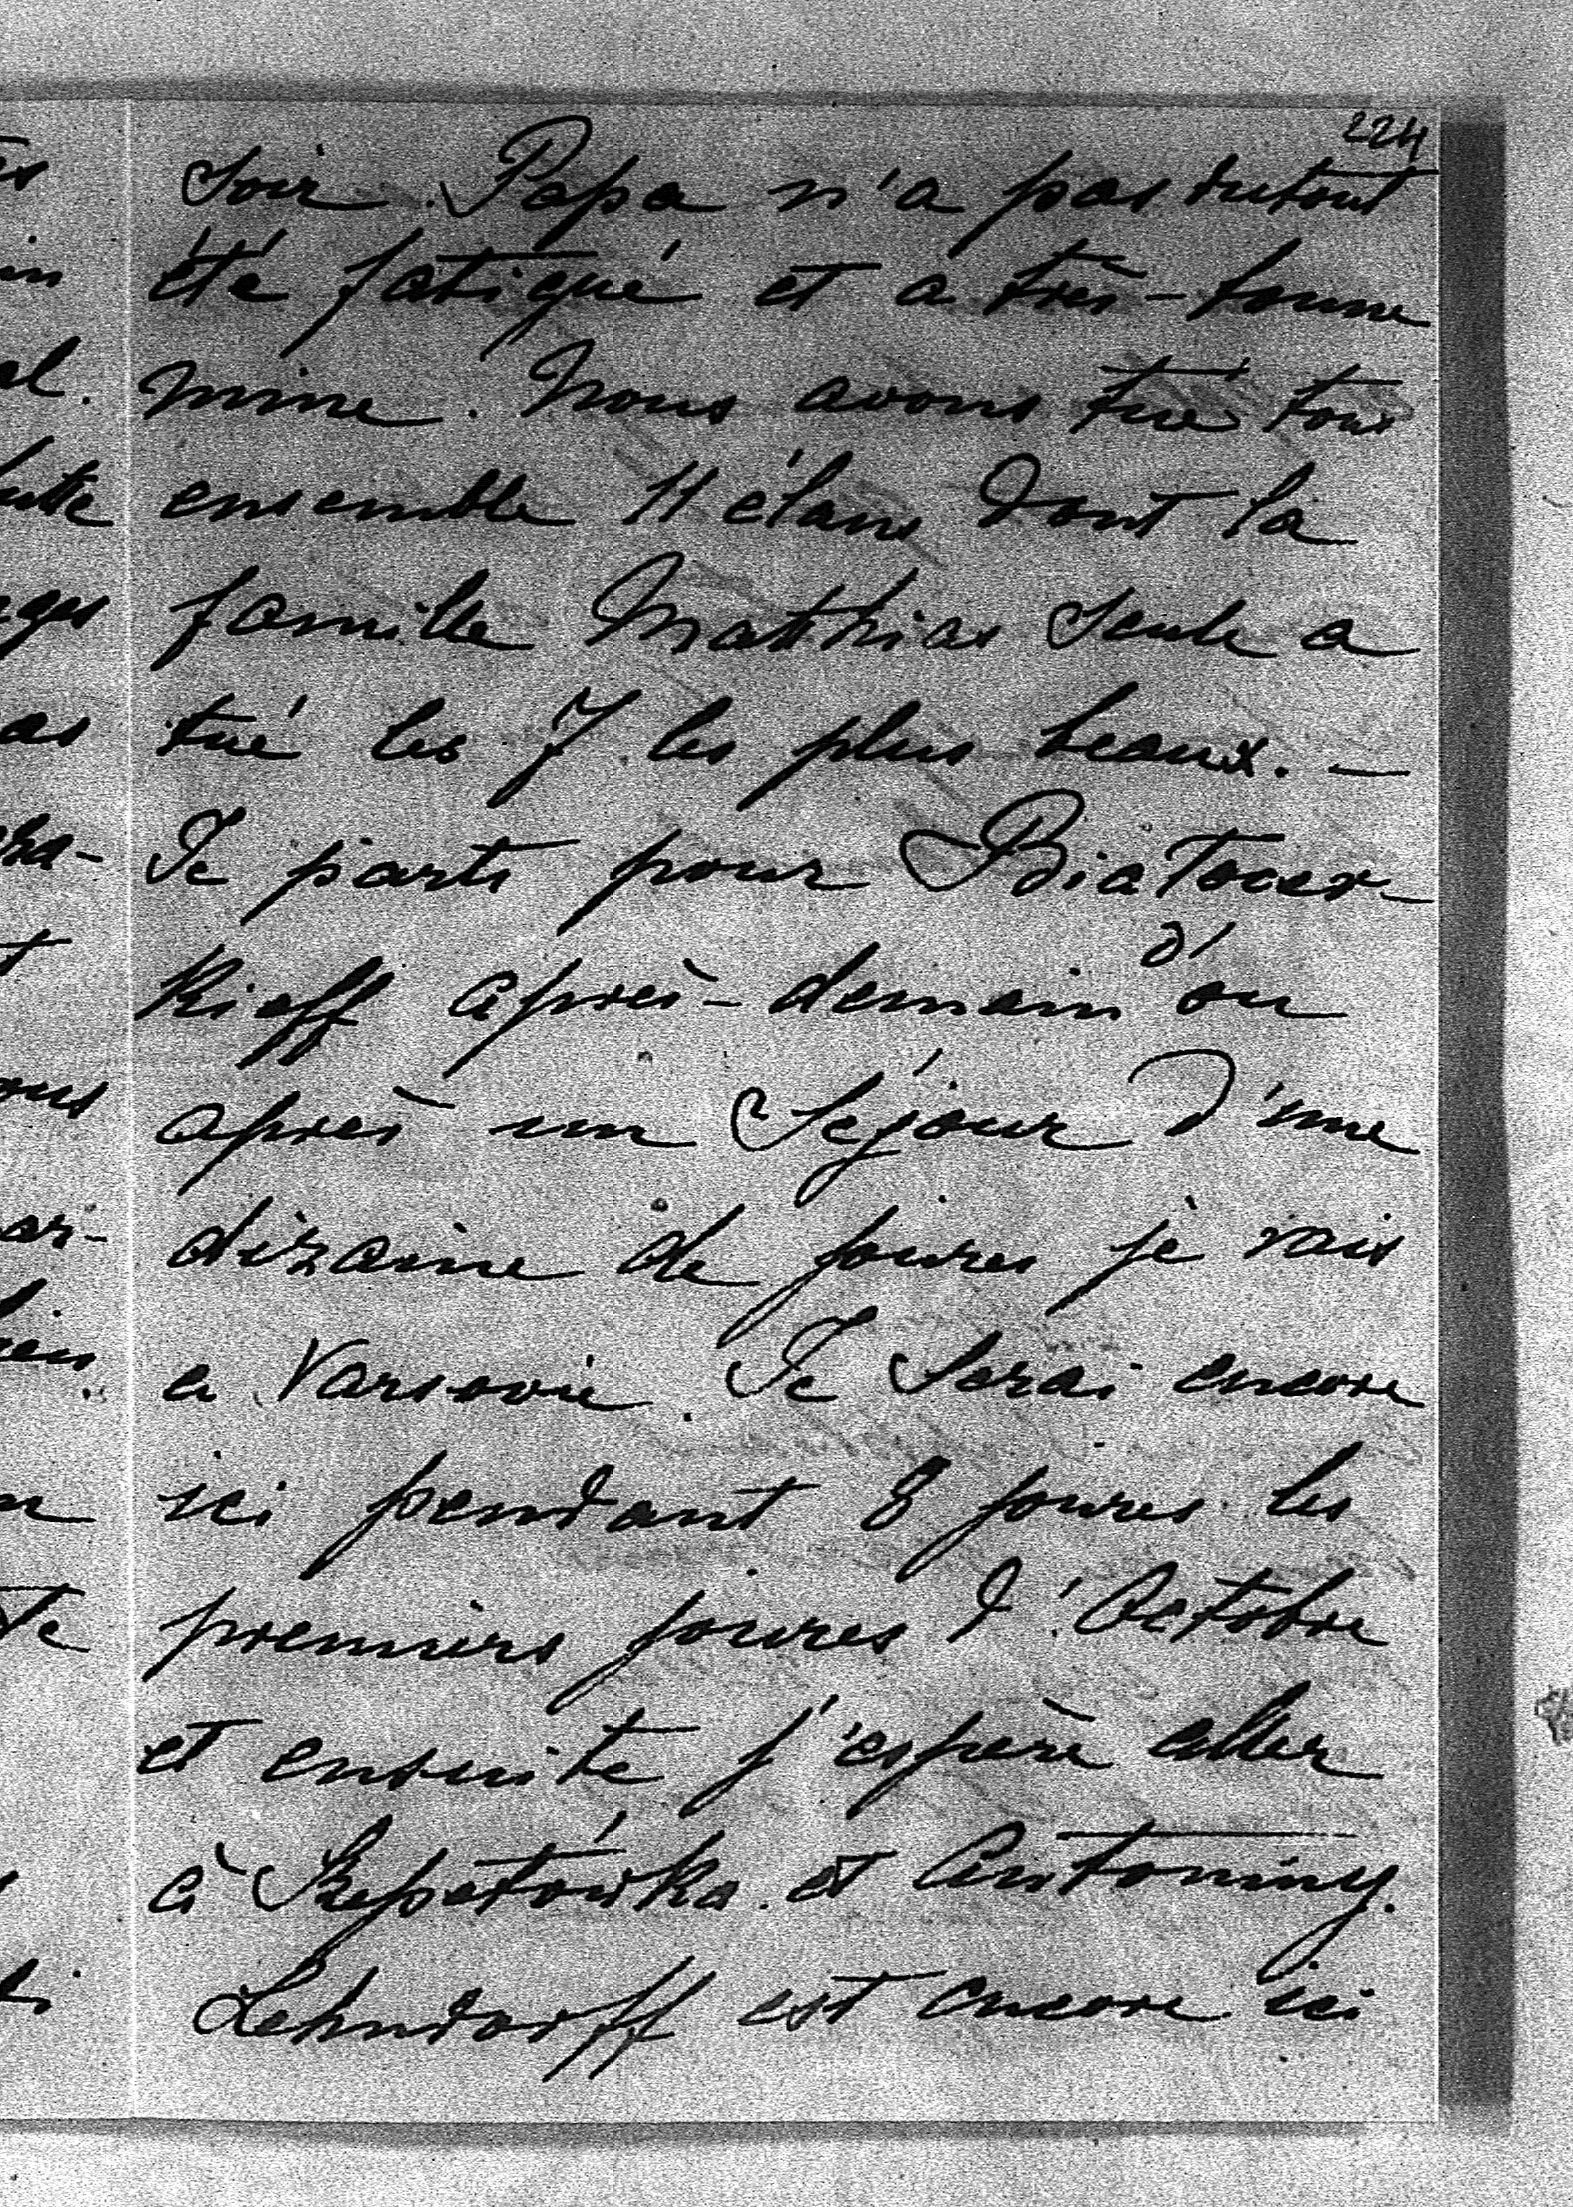 224
soir. Papa n'a pas dutout
été fatigué et a très-bonne
mine. Nous avons tué tous
ensemble 11 élans dont la
famille Matthias seule a
tué les 7 les plus beaux. —
Je parts pour Biatocer-
kieff après-demain d'ou
après un séjour d'une
dizaine de jours je vais
a Varsovie. Je serai encore
ici pendant 8 jours les
premiers jours d'Octobre
et ensuite j'espère aller
à Szepetówka et Antoniny.
Lehndorff est encore ici